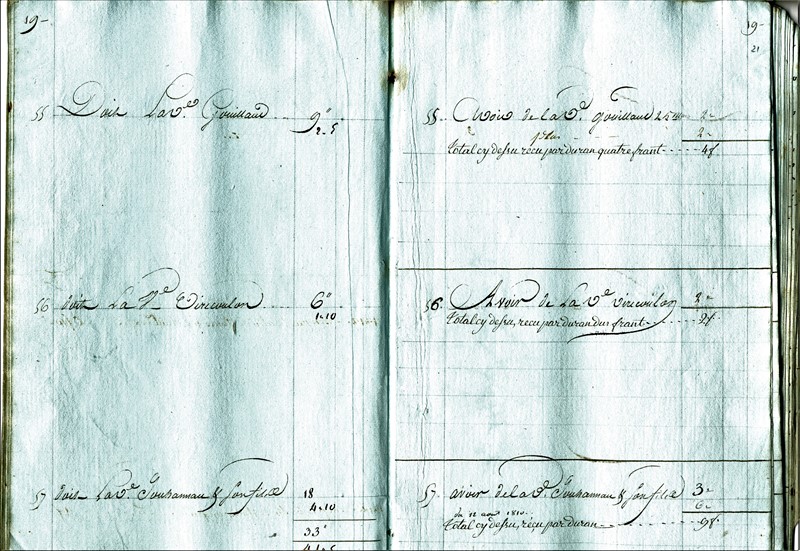 19-
55 Doit La v.e Gouillaud 9"
2-5
56 doit La V.e Vincendon 6"
1-10
57 doit La v.e Jouhanneau & son fils 18
4-10
33"
19-
21
55. Avoir de la V.e gouillaud 2-
2-
total cy dessu, recu par duran quatre frant ---- 4f
56. Avoir de La v.e 2-
total cy dessu, recu par duran dus frant ---- 2f
57. avoir de la v.e Jouhanneau & son fils 3-
6-
du 12 1810.
total cy dessu, recu par duran ---- 9f